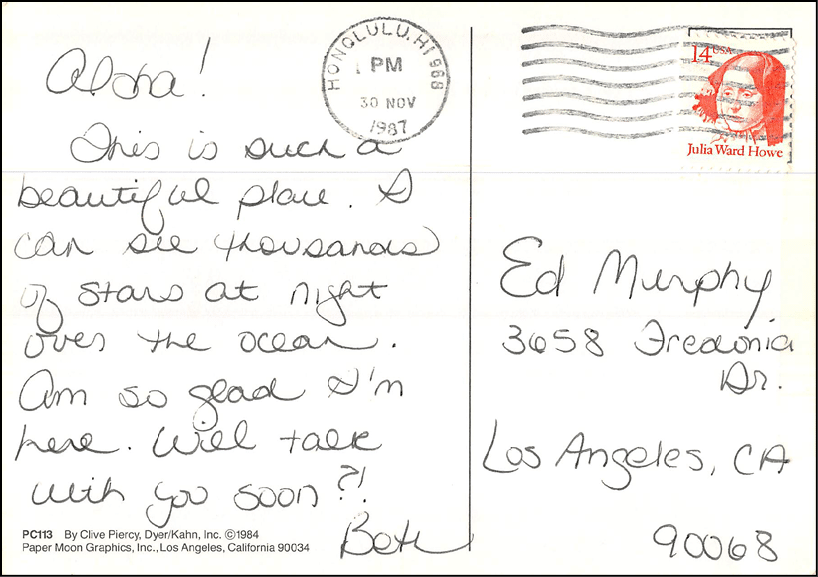 Aloha!
This is such a
beautiful place. I
can see thousands
of stars at night
over the ocean.
Am so glad I'm
here. Will talk
with you soon?!
Beth
PC113 By Clive Piercy, Dyer/Kahn, Inc. ©1984
Paper Moon Graphics, Inc., Los Angeles, California 90034
HONOLULU, HI 968
PM
30 NOV
1987
14 USA
Julia Ward Howe
Ed Murphy
3658 Fredonia
Dr.
Los Angeles, CA
90068